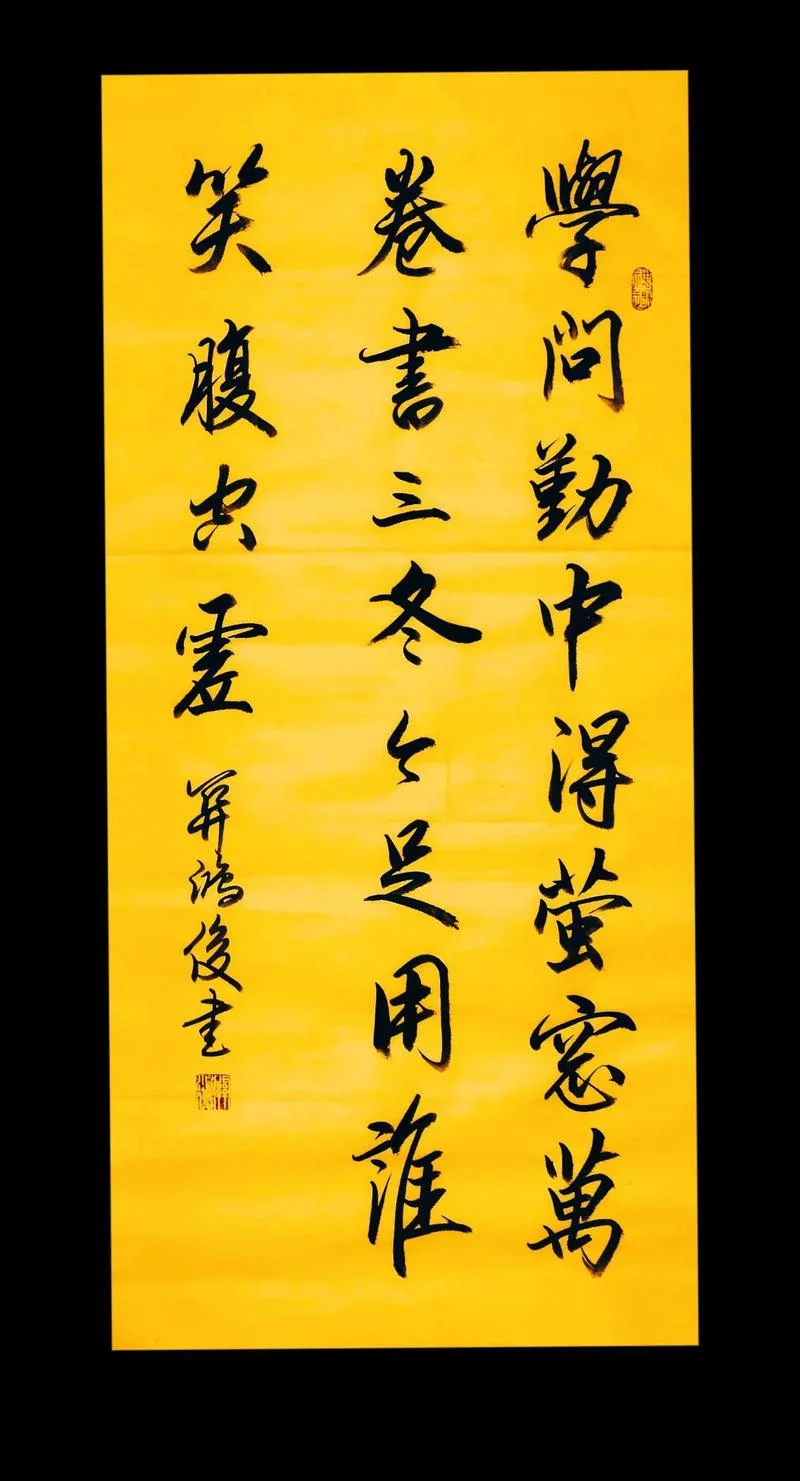 學問勤中得螢窓萬
卷書三冬今足用誰
笑腹空虛
鴻俊書